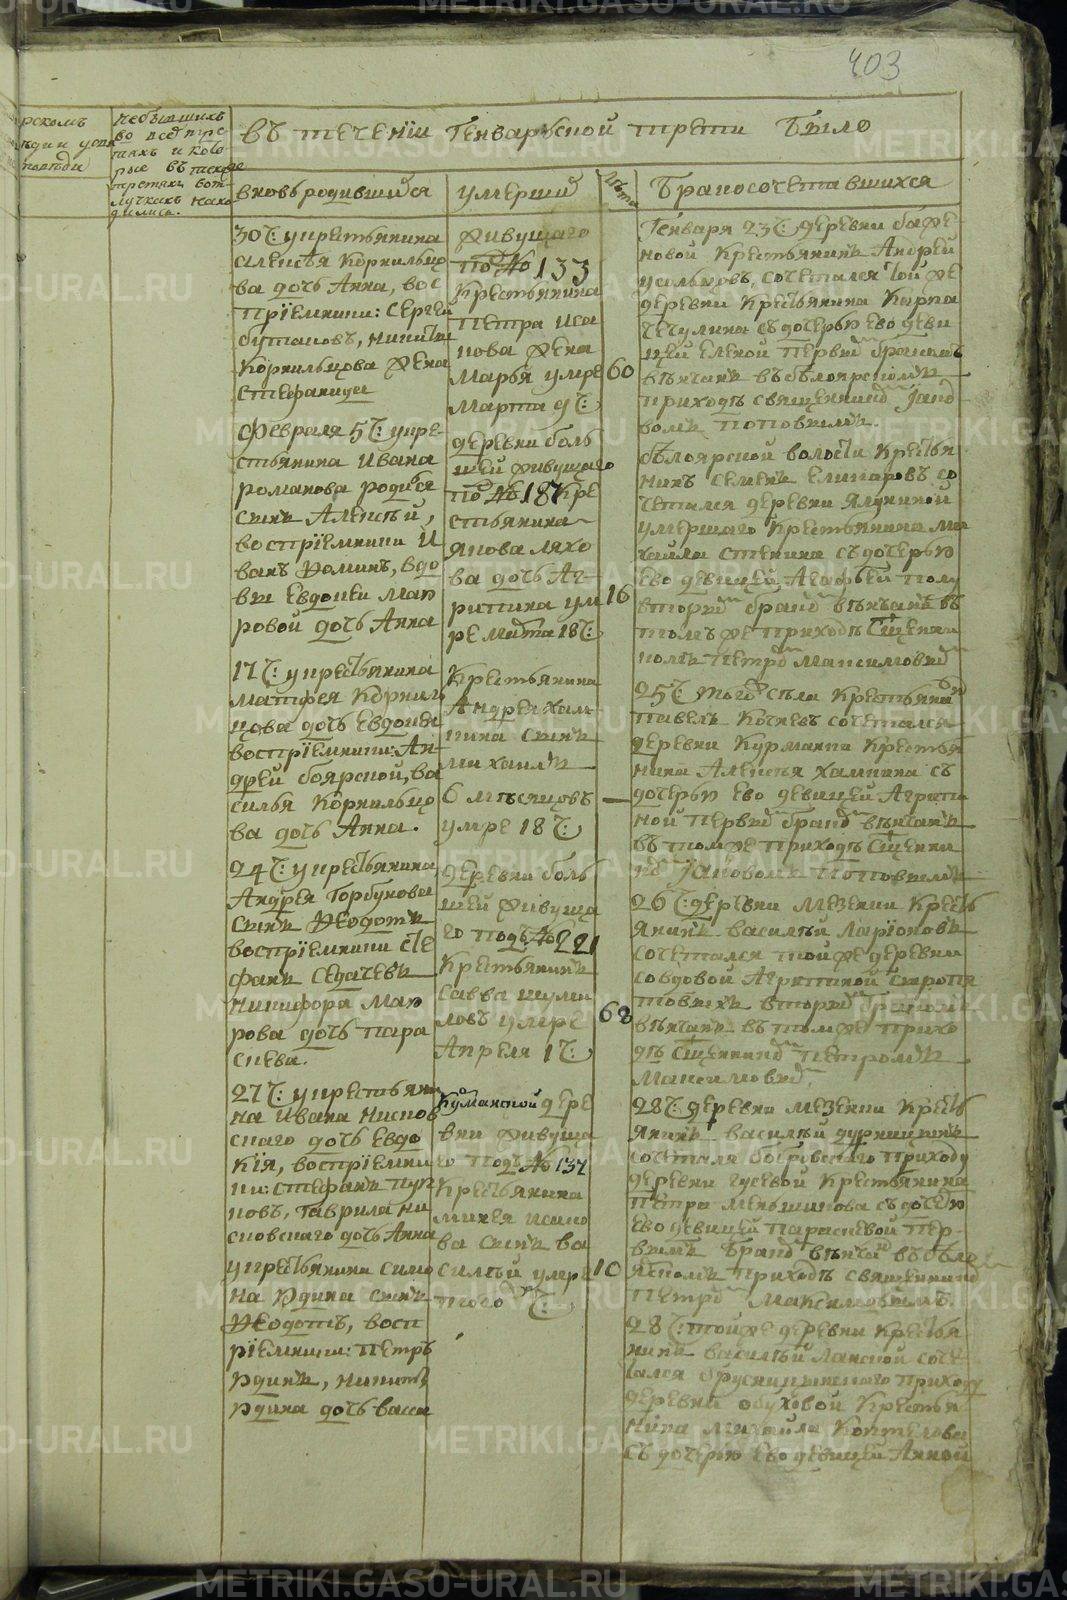 403
рскомъ
небывшихъ
во всѣ тре
тяхъ и кото
рые въ
третяхъ
лучкахъ нахо
дилис.
въ теченiи Генварской трети было
вновь родившийся
умерший
Лѣта
бракосочетавшихся
30 Ч: у крестьянина
Алексѣя Корнильцо
ва дочь Анна, вос
прiемники: Сергей
бутаковъ, Никиты
Корнильцова жена
Стефанида
Февраля 5 Ч: у кре-
стьянина Ивана
романова родися
сынъ Алексѣй,
воспрiемники И
ванъ Фоминъ, вдо
вы Евдокеи Мак
ровой дочь Анна
17 Ч: у крестьянина
Матфея Корниль
цова дочь Евдокея
воспрiемники: Ан-
дрей боярской, ва
силья Корнильцо
ва дочь Анна.
24 Ч: у крестьянина
Андрея Горбунова
сынъ Федотъ
воспрiемники Сте
фанъ Седачевъ
Никифора Мак
рова дочь пара
скева.
27 Ч: у крестьяни
на Ивана Кисков
скаго дочь Евдо
кiя, воспрiемни
ки: стефанъ
новъ, Гаврила Ки
сковскаго дочь Анна
у крестьянина Симо
на Юдина сынъ
Федотъ, восп
рiемники: Петръ
Юдинъ, Никиты
Юдина дочь васса
живущаго
под № 133
Крестьянина
Петра Иса
кова жена
Марья умре 60
Марта 9 Ч:
деревни боль
шей живущаго
под № 187 Кре
стьянина
Якова ляхо
ва дочь Аг-
рипина ум 16
ре Марта 18 Ч:
Крестьянина
Андрея Халь
пина сынъ
михаилъ
6 мѣсяцовъ —
умре 18 Ч:
деревни боль
шей живуща
го подъ № 221
Крестьянинъ
Савва шума
ловъ умре 68
Апреля 1 Ч:
Куманской дере
вни живуща
го подъ № 137
Крестьянина
Михея исако
ва сынъ ва
силѣй умре 10
того Ч:
Генваря 23 Ч: деревни бажe
новой Крестьянинъ Андрей
усольцовъ, сочетался той же
деревни Крестьянина Карпа
Чечулина съ дочерью ево деви
цей Еленой первымъ бракомъ
вѣнчанъ въ бѣлоярскомъ
приходѣ священникомъ Iако
вомъ поповымъ.
бѣлоярской волости Крестья
нинъ Семенъ Елпаровъ со
четался деревни Ялуниной
умершаго Крестьянина ми
хаила Стенина съ дочерью
ево девицей Агафьей полу
вторымъ бракомъ вѣнчанъ въ
томъ же приходѣ Сщенни
комъ Петромъ Максимовымъ
25 Ч: того села Крестьянинъ
Павелъ Кочневъ сочетался
деревни Курманки Крестья
нина Алексѣя хамкина съ
дочерью ево девицей Агрипи
ной первымъ бракомъ вѣнчанъ
въ томже приходѣ Сщенни
комъ Iаковомъ поповымъ
26 Ч: деревни Мезенки Кресть
янинъ василѣй Ларiоновъ
сочетался той же деревни
со вдовой Агрипиной Сыропя
товыхъ вторымъ бракомъ
вѣнчанъ въ томже прихо
дѣ Сщенникомъ Петромъ
Максимовымъ.
28 Ч: деревни мезенки Кресть
янинъ василѣй дурницынъ
сочетался богровскаго приходу
деревни гусевой Крестьянина
Петра Меньшикова съ дочерью
ево девицей Параскевой пер-
вымъ бракомъ вѣнчанъ въ бѣло
ярскомъ приходѣ священникомъ
Петромъ Максимовымъ.
28 Ч: той же деревни Крестья
нинъ василѣй Ланской соче
тался брусницынскаго приходу
деревни обуховой Крестья
нина михайла Коптелова
съ дочерью ево девицей Анной